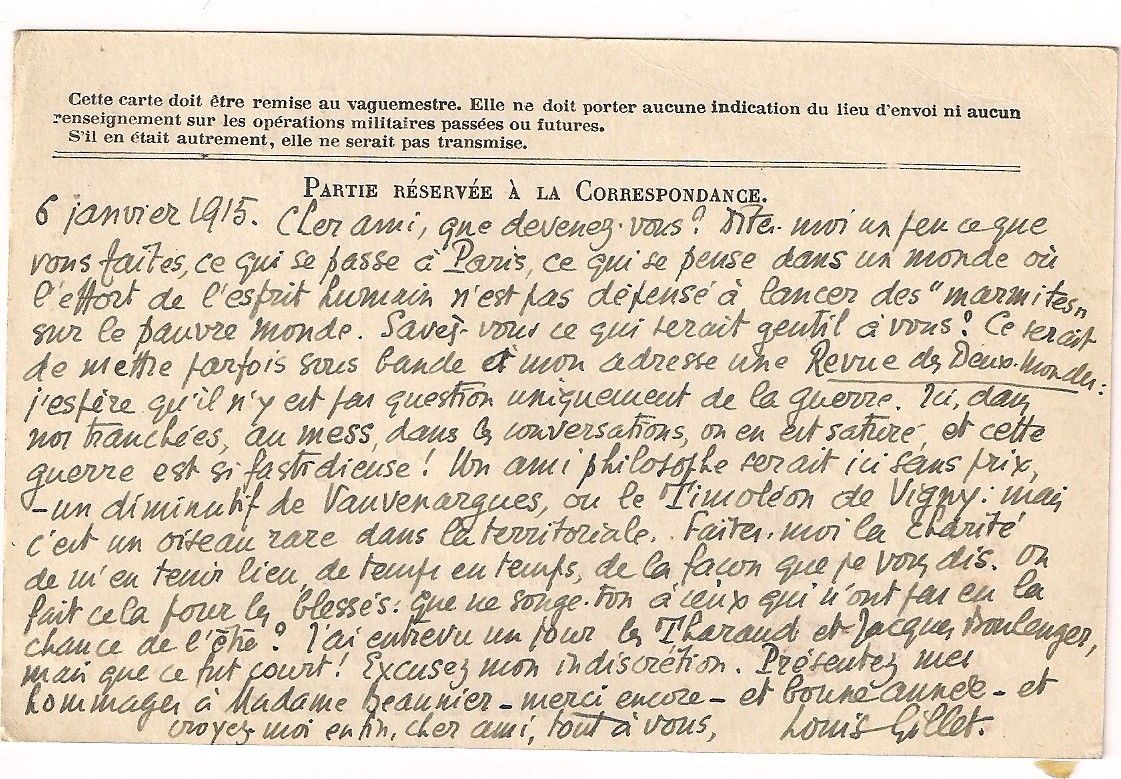 Cette carte doit être remise au vaguemestre. Elle ne doit porter aucune indication du lieu d'envoi ni aucun
renseignement sur les opérations militaires passées ou futures.
S'il en était autrement, elle ne serait pas transmise.
PARTIE RÉSERVÉE À LA CORRESPONDANCE.
6 janvier 1915. Cher ami, que devenez-vous? Dites-moi un peu ce que
vous faites, ce qui se passe à Paris, ce qui se pense dans un monde où
l'effort de l'esprit humain n'est pas dépensé à lancer des "marmites"
sur le pauvre monde. Savez-vous ce qui serait gentil à vous? Ce serait
de mettre parfois sous bande à mon adresse une Revue des Deux-Mondes:
j'espère qu'il n'y est pas question uniquement de la guerre. Ici, dans
nos tranchées, au mess, dans les conversations, on en est saturé, et cette
guerre est si fastidieuse! Un ami philosophe serait ici sans prix,
- un diminutif de Vauvenargues, ou le Timoléon de Vigny: mais
c'est un oiseau rare dans la territoriale. Faites-moi la charité
de m'en tenir lieu, de temps en temps, de la façon que je vous dis. On
fait cela pour les blessés: que ne songe-t-on à ceux qui n'ont pas eu la
chance de l'être? J'ai entrevu un jour les Tharaud et Jacques Boulenger,
mais que ce fut court! Excusez mon indiscrétion. Présentez mes
hommages à Madame Beaunier - merci encore - et bonne année - et
croyez-moi enfin, cher ami, tout à vous, Louis Gillet.